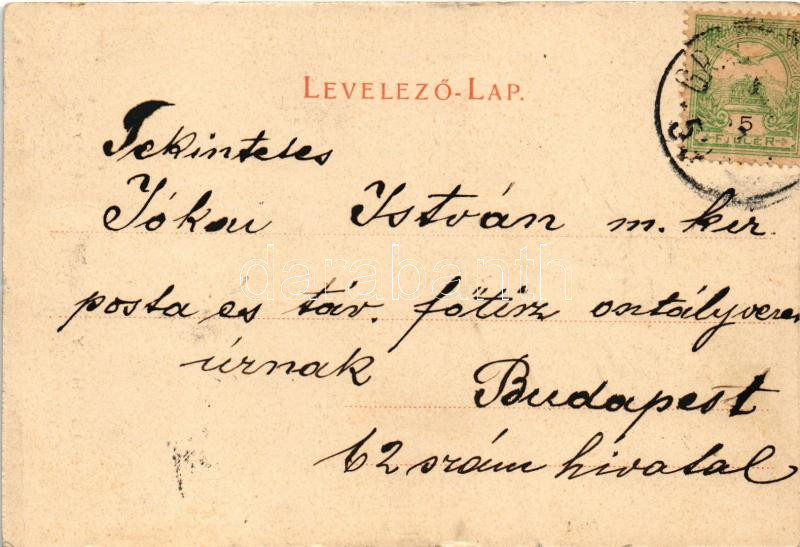 LEVELEZŐ-LAP.
5
FILLÉR
Tekintetes
Jókai István m. kir.
posta es táv. főtisz
úrnak
Budapest
62 szám hivatal
darabanth